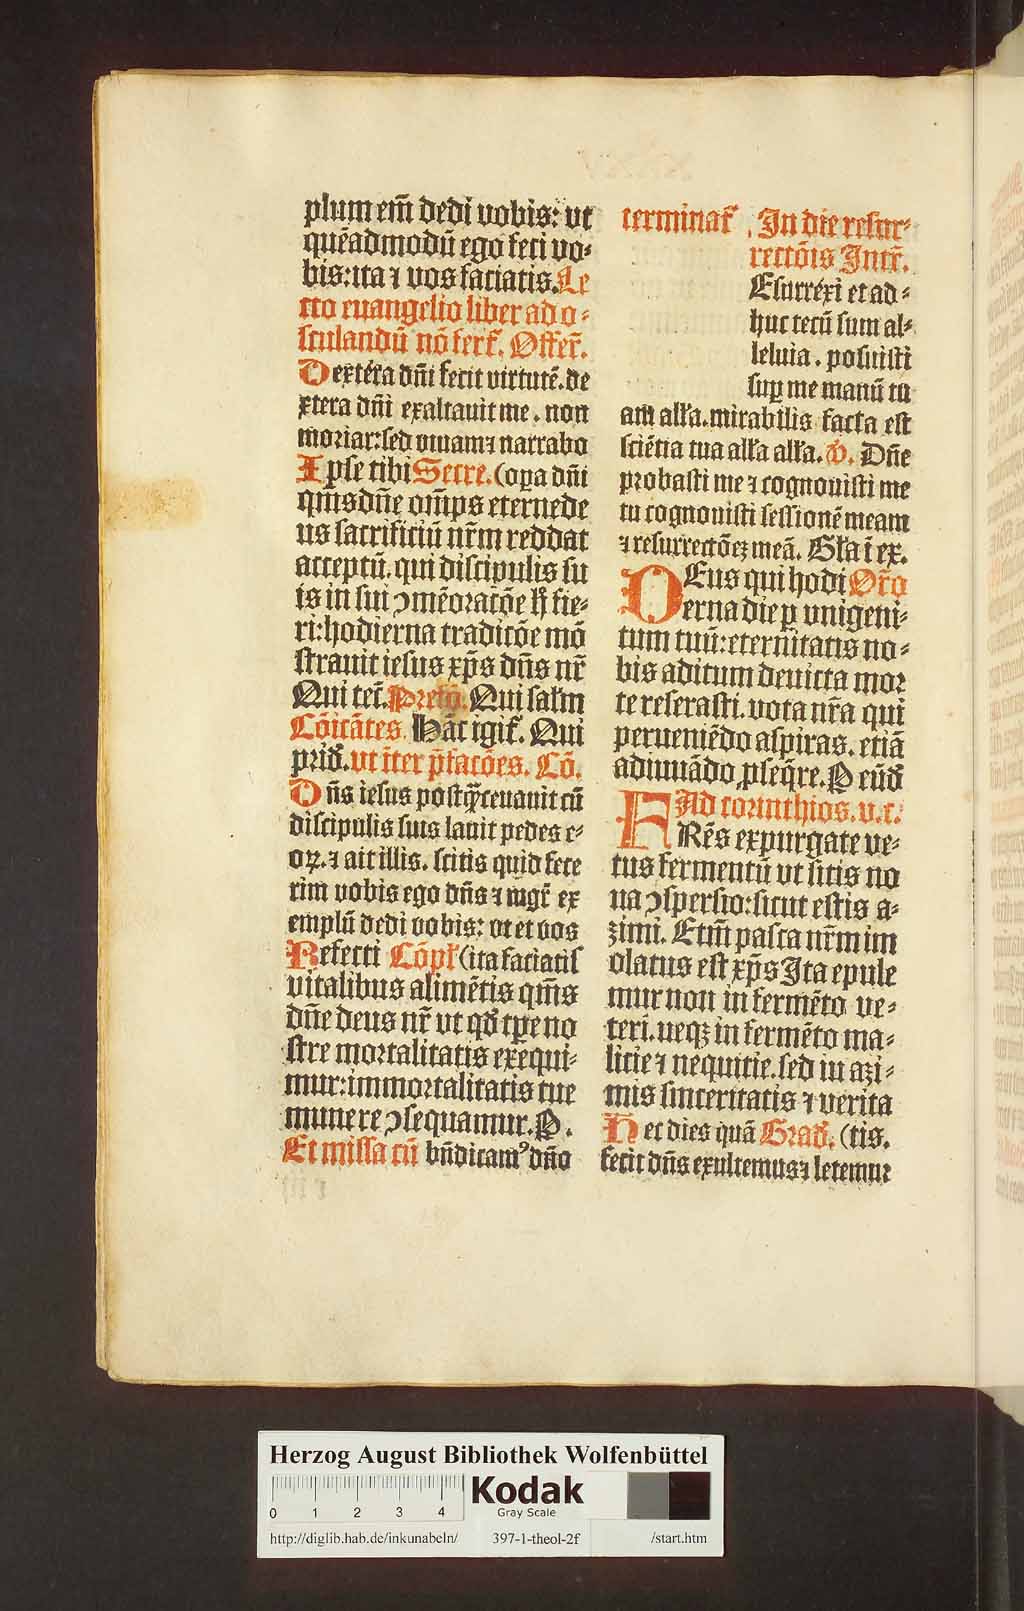 plum em̄ dedi vobis: ut
quēadmodū ego feci vo-
bis: ita ⁊ vos faciatis. Le
cto euangelio liber ad o-
sculandū nō fert᷑. Offer̄.
Dextéra dn̄i fecit virtutē. de
xtera dn̄i exaltauit me. non
moriar: sed viuam ⁊ narrabo
Ipse tibi Secre. (oꝑa dn̄i
qm̄s dn̄e om̄ps eterne de
us sacrificiū nr̄m reddat
acceptū. qui discipulis su
is in sui ꝯmēoratōe h̄ fie-
ri: hodierna traditōe mō
strauit iesus xp̄s dn̄s nr̄
Qui tec̄. Prefō. Qui salm̄
Cōicātes. Hāc igit᷑. Qui
prid̄. ut īter p̄fatōes. Cō.
Dn̄s iesus postq̄̄ cenauit cū
discipulis suis lauit pedes e-
oꝝ. ⁊ ait illis. scitis quid fece
rim vobis ego dn̄s ⁊ mgr̄ ex
emplū dedi vobis: vt et vos
Refecti Cōpl̄ (ita faciatis
vitalibus alimētis qm̄s
dn̄e deus nr̄ vt qd̄ tꝑe no
stre mortalitatis exequi-
mur: immortalitatis tue
munere ꝯsequamur. P.
Et missa cū bn̄dicamꝰ dn̄o
terminat᷑. In die resur-
rectōis Intr̄.
Esurréxi et ad-
huc tecū sum al-
leluia. posuisti
suꝑ me manū tu
am all̄a. mirabilis facta est
sciētia tua all̄a all̄a. v̄. Dn̄e
probasti me ⁊ cognouisti me
tu cognouisti sessionē meam
⁊ resurrectōeꝫ meā. Gl̄a ī ex.
DEus qui hodi Or̄o
erna die ꝑ vnigeni-
tum tuū: eternitatis no-
bis aditum deuicta mor
te reserasti. vota nr̄a qui
perueniēdo aspiras. etiā
adiuuādo ꝓseq̄re. P eūd̄
Ad corinthios. v. c.
FRēs expurgate ve-
tus fermentū vt sitis no
ua ꝯspersio: sicut estis a-
zimi. Etm̄ pasca nr̄m im
olatus est xp̄s Ita epule
mur non in fermēto ve-
teri. neqꝫ in fermēto ma-
licie ⁊ nequitie. sed in azi-
mis sinceritatis ⁊ verita
Hec dies quā Grad̄. (tis.
fecit dn̄s exultemus ⁊ letemur
Herzog August Bibliothek Wolfenbüttel
0 1 2 3 4
Kodak
Gray Scale
http://diglib.hab.de/inkunabeln/ 397-1-theol-2f /start.htm